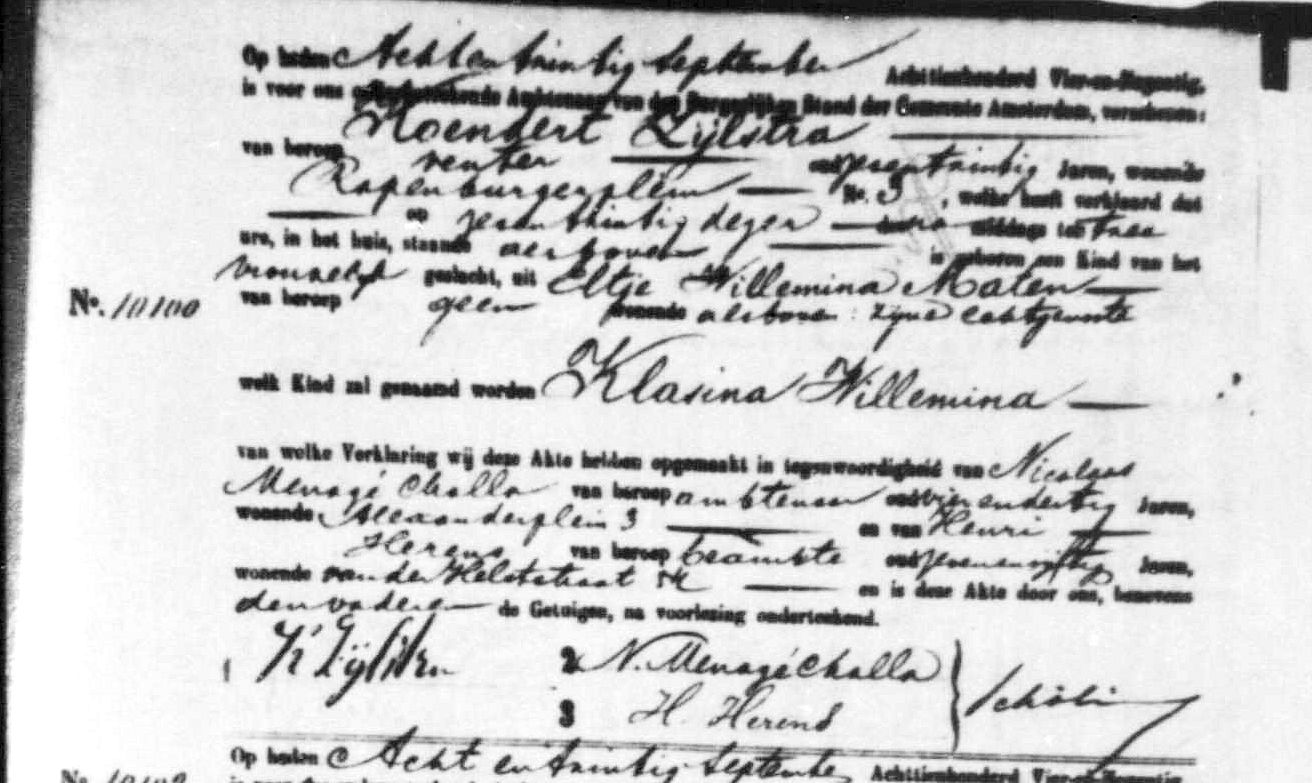 Op heden Acht en twintig September Achttienhonderd Vier-en-Negentig,
is voor ons ondergeteekende Ambtenaar van den Burgerlijken Stand der Gemeente Amsterdam, verschenen:
Koendert Zijlstra
van beroep venter oud zesentwintig Jaren, wonende
Rapenburgerplein No. 3, welke heeft verklaard dat
op zesentwintig dezer des middags ten twee
ure, in het huis, staande alsboven is geboren een Kind van het
vrouwelijk geslacht, uit Eltje Willemina Maten
No. 10100 van beroep geen wonende alsboven: zijne echtgenoote
welk Kind zal genaamd worden Klasina Willemina
van welke Verklaring wij deze Akte hebben opgemaakt in tegenwoordigheid van Nicolaas
Menagé Challa van beroep ambtenaar oud vierendertig Jaren,
wonende Alexanderplein 3 en van Henri
Herens van beroep beambte oud Jaren,
wonende van der Helststraat en is deze Akte door ons, benevens
den vader en de Getuigen, na voorlezing onderteekend.
K Zijlstra 2 N. Menagé Challa
3 H. Herens
Op heden Acht en twintig September Achttienhonderd Vier-en-Negentig,
No.